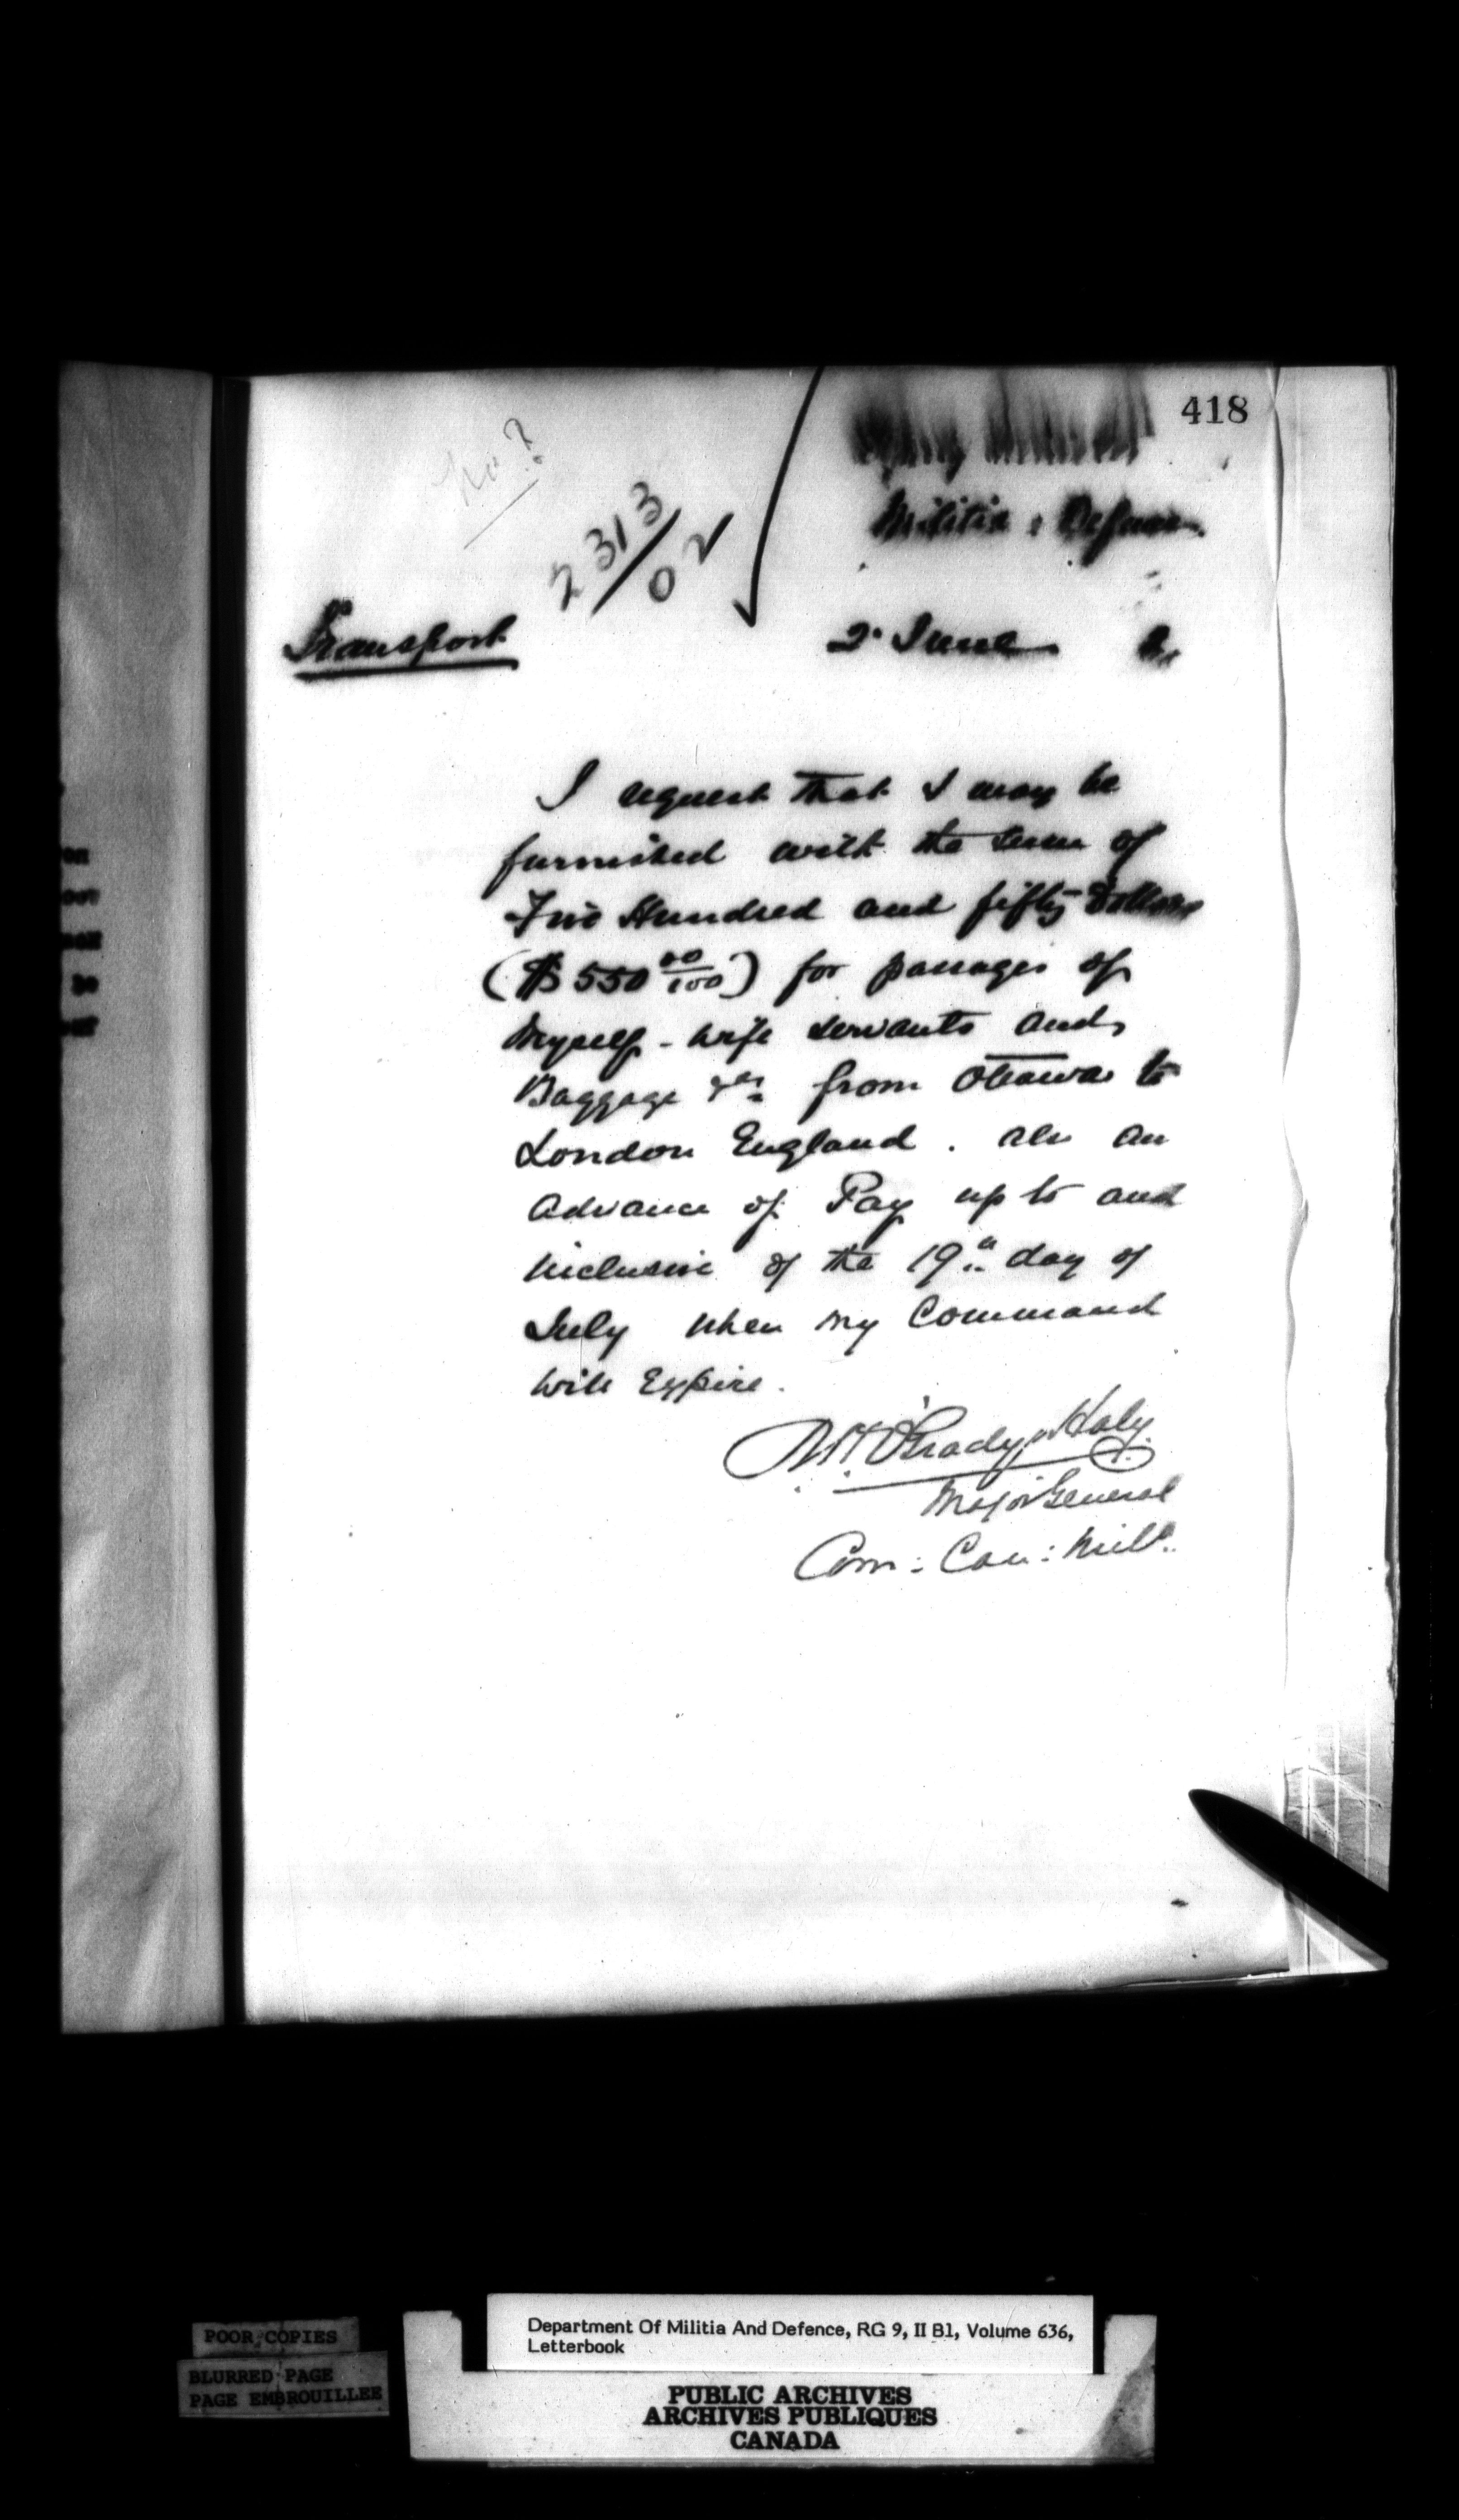 418
no?
2313/02
Militia & Defence
Transport
2 June 2
I request that I may be
furnished with the sum of
Five Hundred and fifty Dollars
($550 00/100) for passages of
Myself - wife servants and
Baggage &c from Ottawa to
London England. also an
advance of Pay up to and
inclusive of the 19th day of
July when my Command
will Expire.
RH O'Grady Haly
Major General
Com: Can: Mila.
POOR COPIES
BLURRED PAGE
PAGE EMBROUILLEE
Department Of Militia And Defence, RG 9, II B1, Volume 636,
Letterbook
PUBLIC ARCHIVES
ARCHIVES PUBLIQUES
CANADA